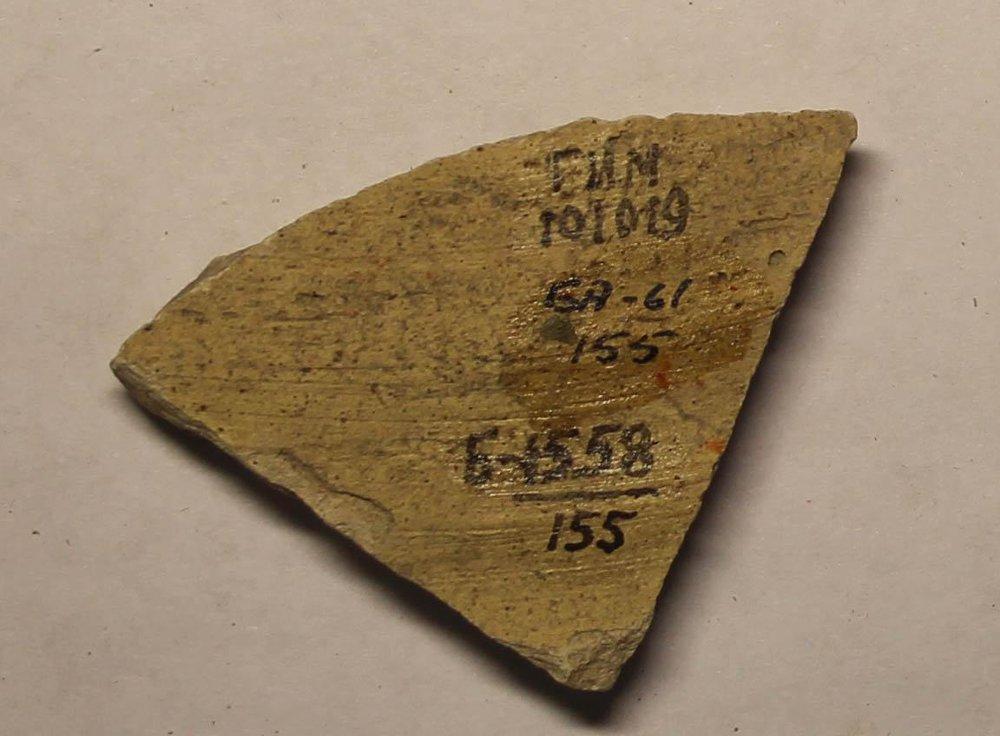 ГИМ
101019
БА-61
155
Б-1558
155